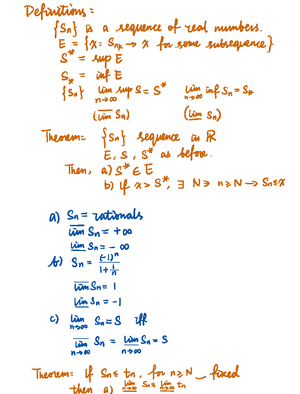 Definitions:
{Sn} is a sequence of real numbers.
E = {x: Snₖ → x for some subsequence}
S* = sup E
S⁎ = inf E
{Sn} lim sup S = S* lim inf Sn = S⁎
n→∞ n→∞
(lim Sn) (lim Sn)
Theorem: {Sn} sequence in ℝ
E, S, S* as before.
Then, a) S* ∈ E
b) if x > S*, ∃ N ≥ n ≥ N → Sn ≤ x
a) Sn = rationals
lim Sn = +∞
lim Sn = -∞
b) Sn = (-1)ⁿ / 1 + 1/n
lim Sn = 1
lim Sn = -1
c) lim Sn = S iff
n→∞
lim Sn = lim Sn = S
n→∞ n→∞
Theorem: if Sn ≤ tn, for n ≥ N _ fixed
then a) lim Sn ≤ lim tn
n→∞ n→∞